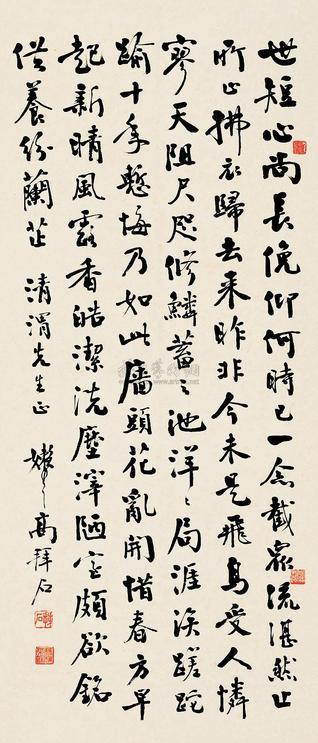 世短心尚長俛仰何時已一念截眾流湛然止
所止拂衣歸去来昨非今未是飛鳥受人憐
寥天阻尺咫修鱗蓄之池洋洋局涯涘蹉跎
踰十年慙悔乃如此牆頭花亂開惜春方早
起新晴風露香皓潔洗塵滓陋室頗欲銘
供養紛蘭芷 清渭先生正 嬾雲高拜石